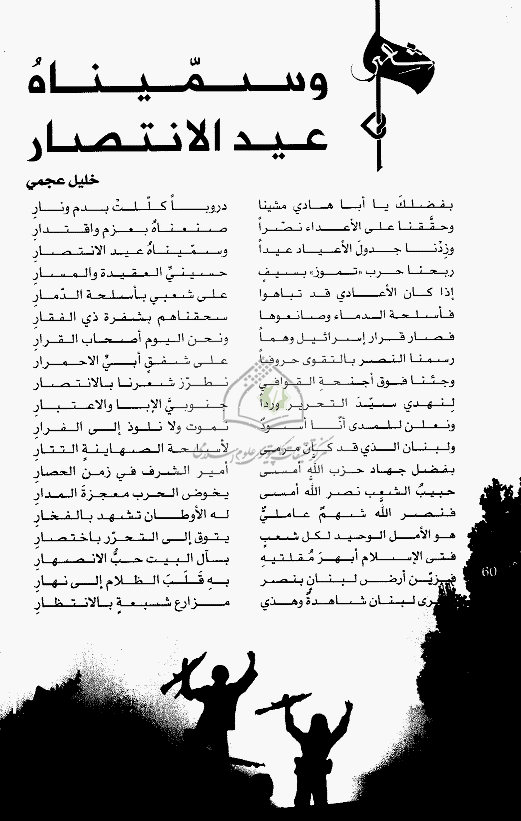 شعر
وسمّيناهُ
عيد الانتصار
خليل عجمي
بفضلكَ يا أبا هادي مشينا دروباً كلّلتْ بدم ونارِ
وحقَّقنا على الأعداء نصراً صنعناهُ بعزم واقتدارِ
وزِدْنا جدولَ الأعياد عيداً وسمّيناهُ عيد الانتصارِ
ربحنا حرب «تموز» بسيفٍ حسينيِّ العقيدة والمسارِ
إذا كان الأعادي قد تباهوا على شعبي بأسلحة الدّمارِ
فأسلحة الدماء وصانعوها سحقناهم بشفرة ذي الفقارِ
فصار قرار إسرائيل وهماً ونحن اليوم أصحاب القرارِ
رسمنا النصر بالتقوى حروفاً على شفقٍ أبيِّ الاحمرارِ
وجئنا فوق أجنحة القوافي نطرّز شعرنا بالانتصارِ
لِنهدي سيّدَ التحرير ورداً جنوبيَّ الإبا والاعتبارِ
ونعلن للمدى أنّا أسودٌ نموت ولا نلوذ إلى الفرارِ
ولبنان الذي قد كانَ مرمى لأسلحة الصهاينةِ التتارِ
بفضل جهاد حزب الله أمسى أمير الشرف في زمن الحصارِ
حبيبُ الشعب نصر الله أمسى يخوض الحرب معجزةَ المدارِ
فنصر الله شهمٌ عامليٌّ له الأوطان تشهد بالفخارِ
هو الأمل الوحيد لكل شعبٍ يتوق إلى التحرّر باختصارِ
فتى الإسلام أبهرَ مُقلتيهِ بآل البيت حبُّ الانصهارِ
فزيّن أرض لبنانٍ بنصر بهِ قَلَبَ الظلام إلى نهارِ
لبنان شاهدةٌ وهذي مزارع شبعةٍ بالانتظارِ
60